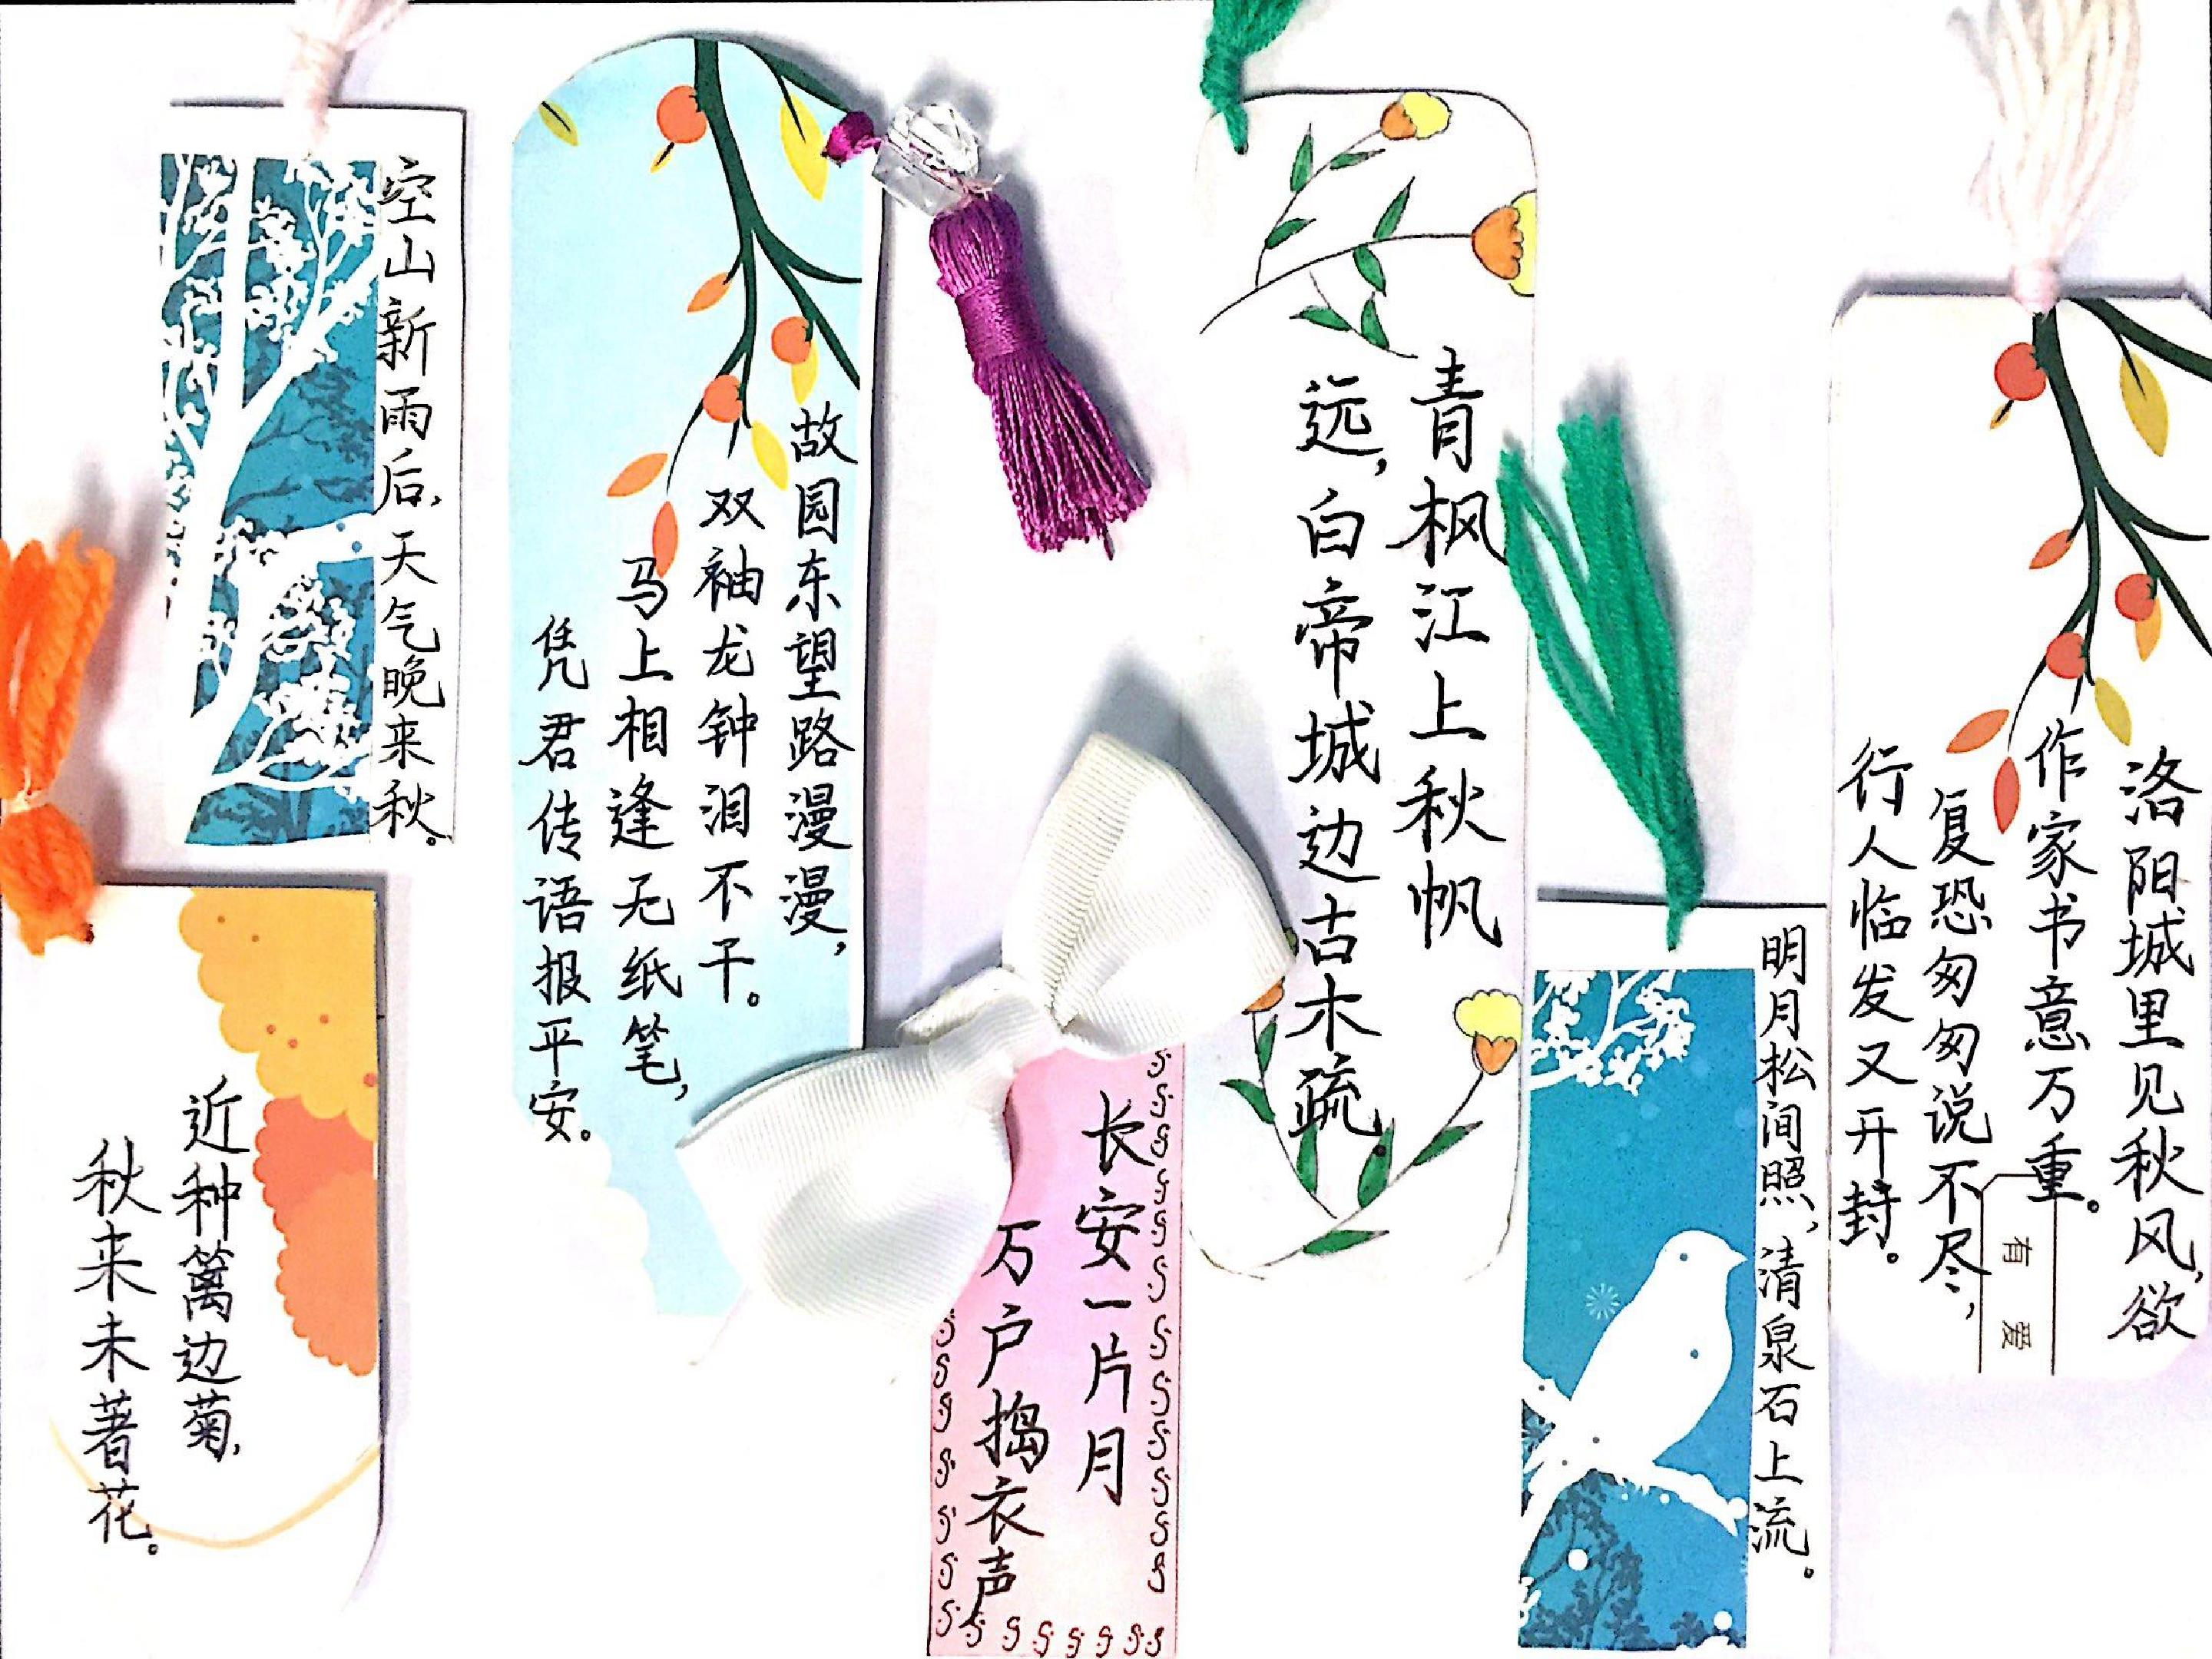 空山新雨后，天气晚来秋。
近种篱边菊，
秋来未著花。
故园东望路漫漫，
双袖龙钟泪不干。
马上相逢无纸笔，
凭君传语报平安。
长安一片月
万户捣衣声
青枫江上秋帆
远，白帝城边古木疏。
明月松间照，清泉石上流。
洛阳城里见秋风，欲
作家书意万重。
复恐匆匆说不尽，
行人临发又开封。
有爱